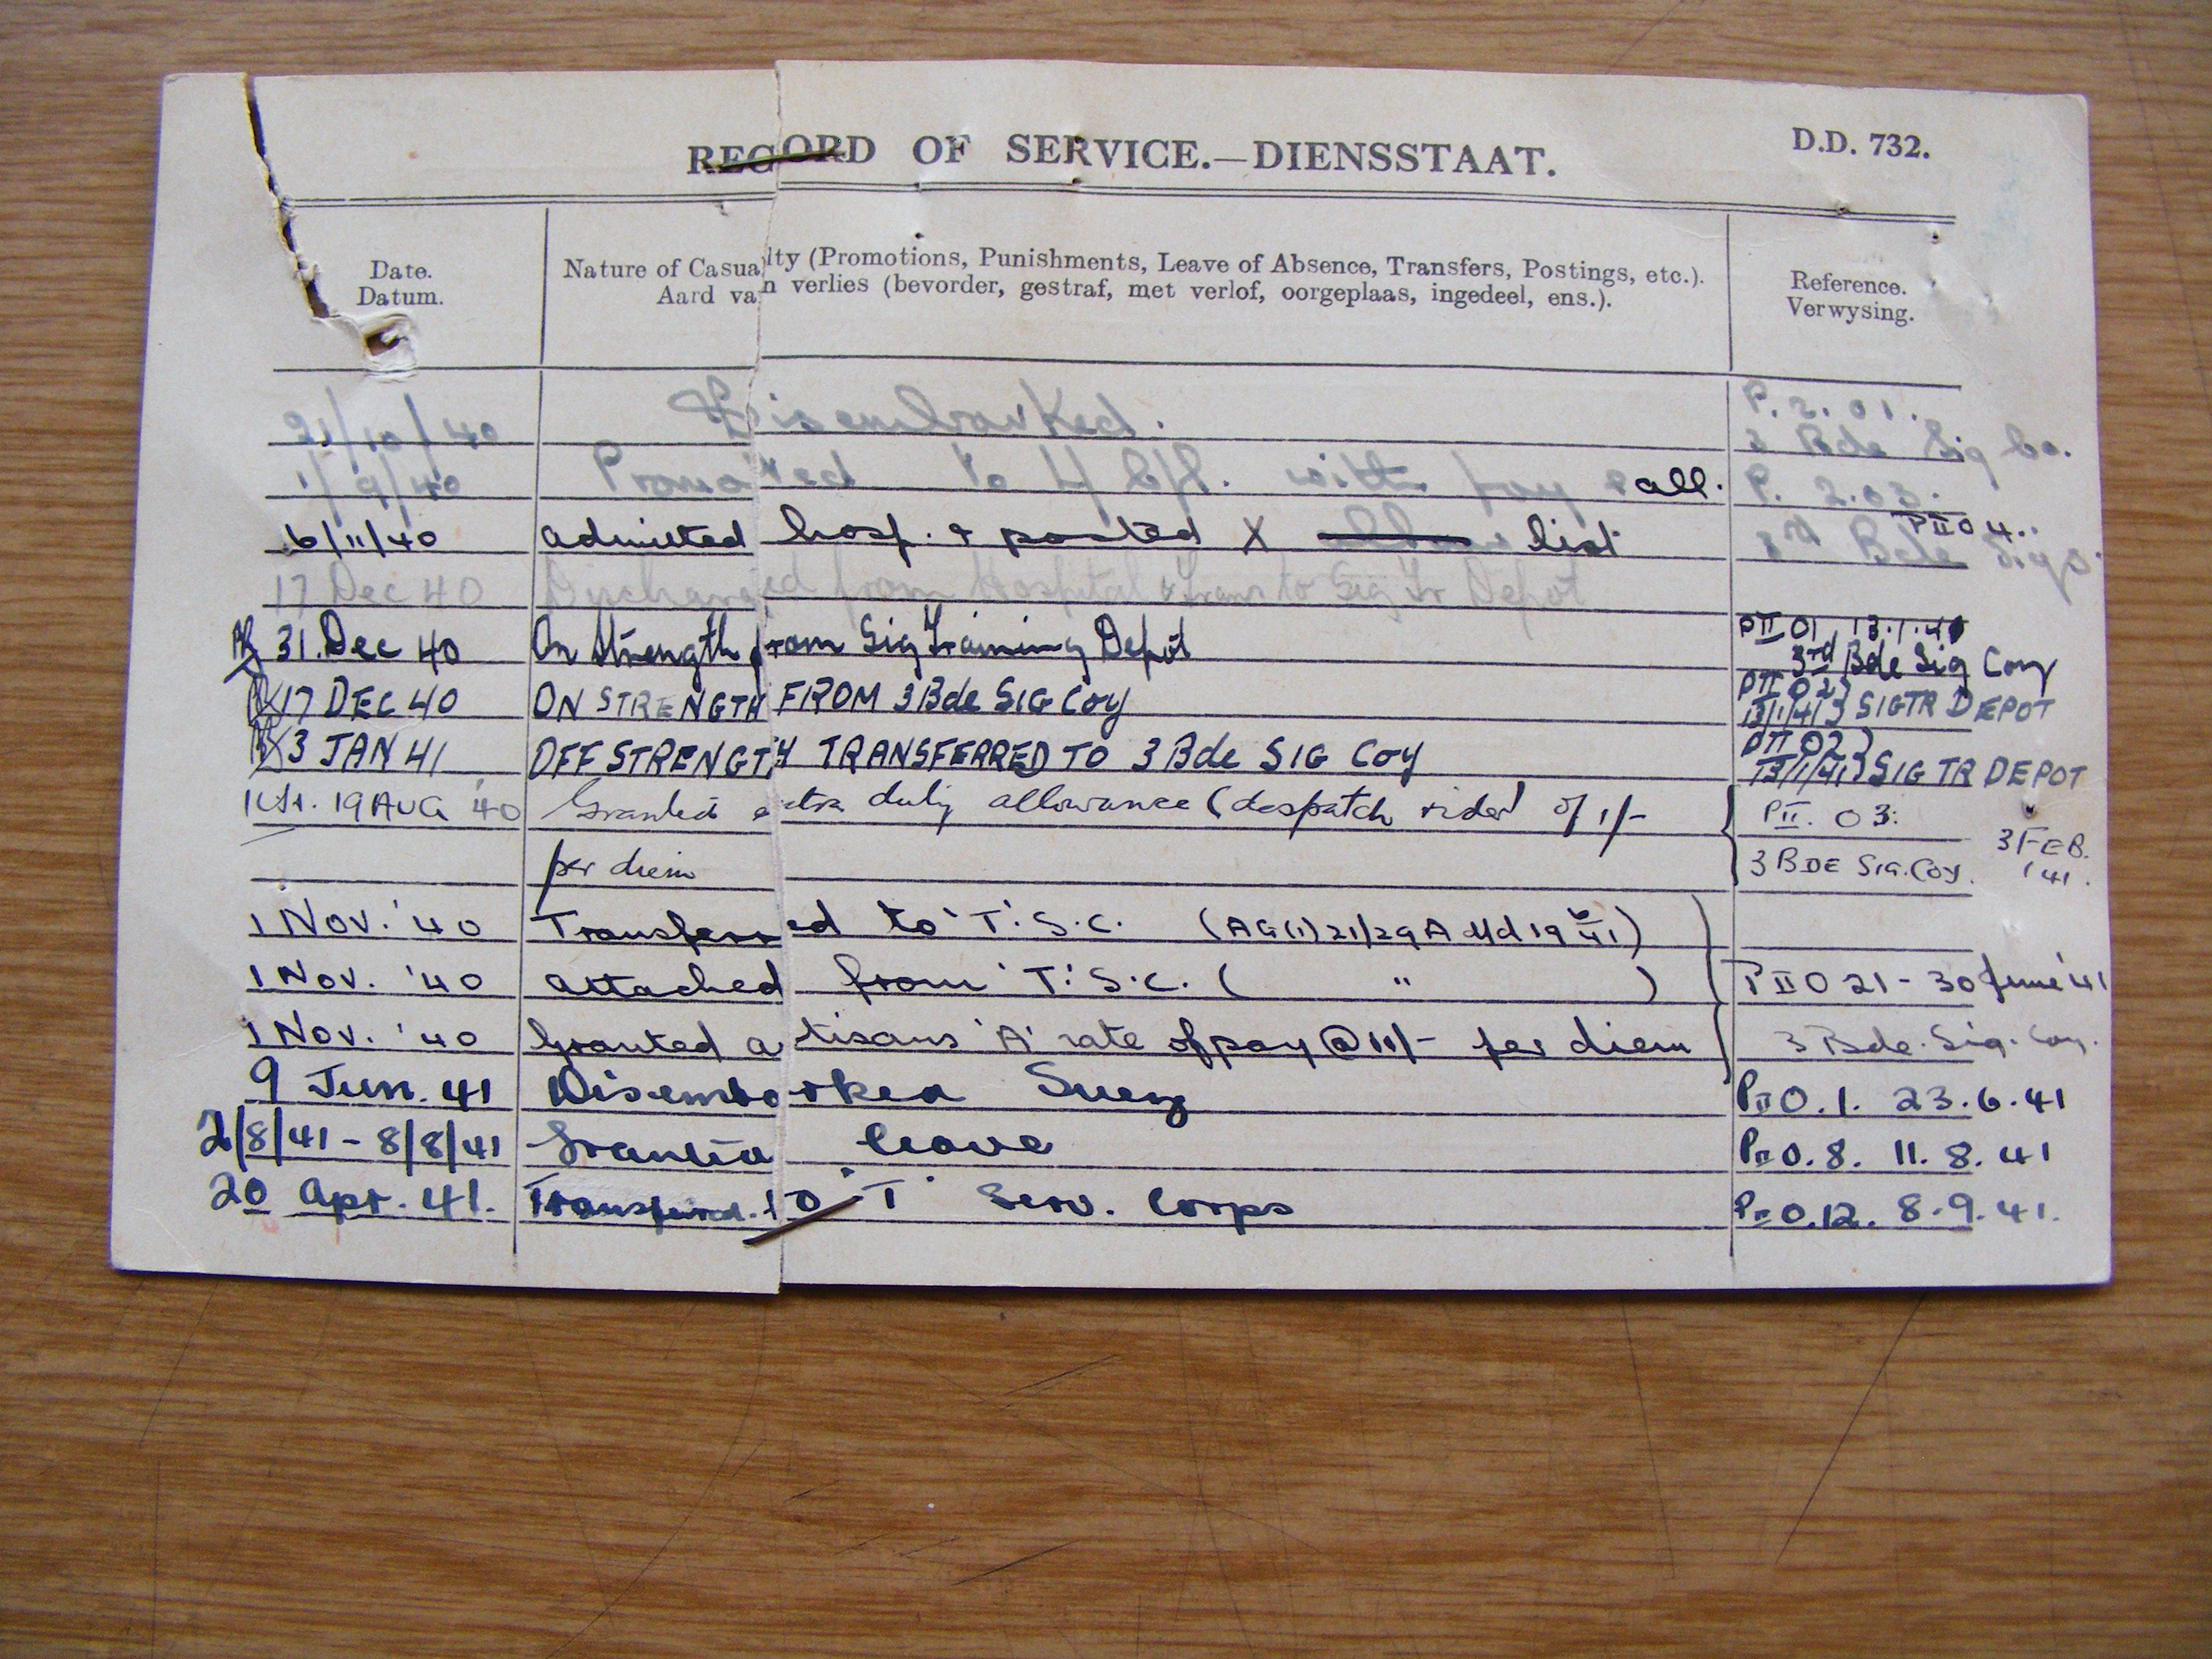 RECORD OF SERVICE.—DIENSSTAAT.
D.D. 732.
Date.
Datum.
Nature of Casualty (Promotions, Punishments, Leave of Absence, Transfers, Postings, etc.).
Aard van verlies (bevorder, gestraf, met verlof, oorgeplaas, ingedeel, ens.).
Reference.
Verwysing.
21/10/40 Disembarked. P. 2. 01.
3 Bde Sig Co.
1/9/40 Promoted to L/Cpl. with pay & all. P. 2.03.
6/11/40 admitted hosp. & posted X list PII O 4..
3rd Bde Sigs.
17 Dec 40 Discharged from Hospital & trans to Sig Tr Depot
31. Dec 40 On Strength from Sig Training Depot PII O1 13.1.41
3rd Bde Sig Coy
17 DEC 40 ON STRENGTH FROM 3 Bde SIG Coy PII O2 13/1/41 } SIG TR DEPOT
3 JAN 41 OFF STRENGTH TRANSFERRED TO 3 Bde SIG Coy PII O2 13/1/41 } SIG TR DEPOT
19 AUG '40 Granted extra duty allowance (despatch rider) of 1/- PII. O3:
per diem 3 BDE SIG. COY. 3 FEB. '41.
1 Nov. '40 Transferred to 'T'. S.C. (AG(1)21/29A dd 19 6/41)
1 Nov. '40 attached from 'T'. S.C. ( " ) PII O 21 - 30 June '41
1 Nov. '40 Granted artisans 'A' rate of pay @ 11/- per diem 3 Bde. Sig. Coy.
9 Jun. 41 Disembarked Suez PII O. 1. 23.6.41
2/8/41 - 8/8/41 Granted leave PII O. 8. 11. 8. 41
20 Apr. 41. Transferred. to 'T' Serv. Corps PII O. 12. 8.9.41.